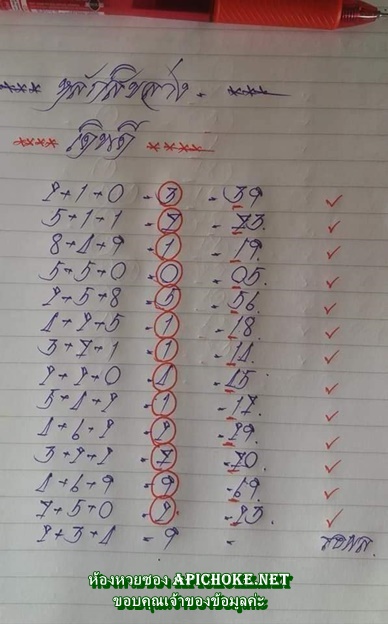 *** หลักสิบล่าง. ***
**** เดินดี ****
2+1+0 = 3 - 39 ✓
5+1+1 = 7 - 73. ✓
8+4+9 = 1 - 19. ✓
5+5+0 = 0 - 05. ✓
2+5+8 = 5 - 56. ✓
4+2+5 = 1 - 18. ✓
3+7+1 = 1 - 14. ✓
2+2+0 = 4 - 45. ✓
5+4+2 = 1 - 17. ✓
4+6+2 = 2 - 29. ✓
3+2+2 = 7 - 70. ✓
4+6+9 = 9 - 69. ✓
7+5+0 = 2 - 23. ✓
2+3+4 = 9 - รอผล.
ห้องหวยซอง APICHOKE.NET
ขอบคุณเจ้าของข้อมูลค่ะ